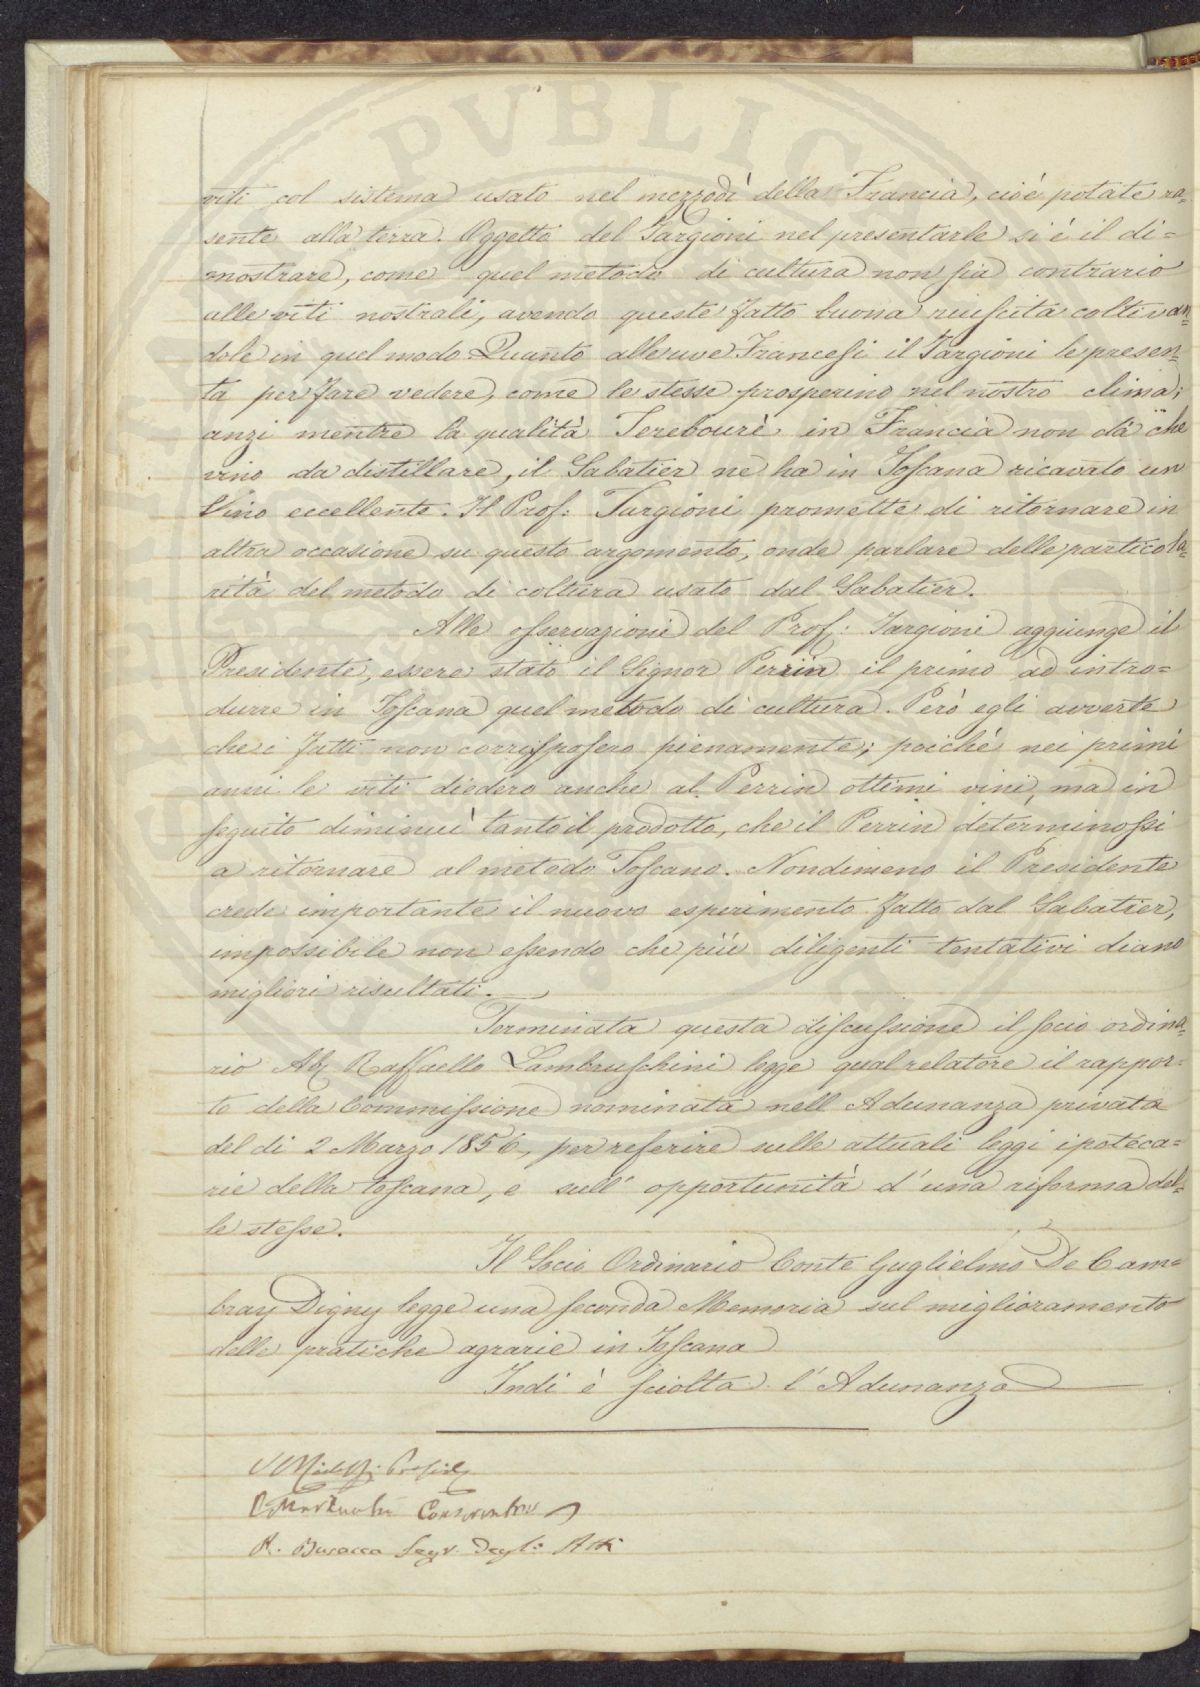 viti col sistema usato nel mezzodì della Francia, cioè potate ra-
sente alla terra. Oggetto del Targioni nel presentarle si è il di=
mostrare, come quel metodo di cultura non sia contrario
alle viti nostrali, avendo queste fatto buona riuscita coltivan-
dole in quel modo. Quanto alle uve Francesi il Targioni le presen-
ta per fare vedere, come le stesse prosperino nel nostro clima;
anzi mentre la qualità Terebourè in Francia non dà che
vino da distillare, il Sabatier ne ha in Toscana ricavato un
Vino eccellente. Il Prof: Targioni promette di ritornare in
altra occasione su questo argomento, onde parlare delle particola-
rità del metodo di coltura usato dal Sabatier.
Alle osservazioni del Prof: Targioni aggiunge il
Presidente, essere stato il Signor Perrin il primo ad intro=
durre in Toscana quel metodo di cultura. Però egli avverte
che i fatti non corrisposero pienamente; poichè nei primi
anni le viti diedero anche al Perrin ottimi vini, ma in
seguito diminuì tanto il prodotto, che il Perrin determinossi
a ritornare al metodo Toscano. Nondimeno il Presidente
crede importante il nuovo esperimento fatto dal Sabatier,
impossibile non essendo che più diligenti tentativi diano
migliori risultati.
Terminata questa discussione il socio ordina-
rio Ab. Raffaello Lambruschini legge qual relatore il rappor-
to della Commissione nominata nell Adunanza privata
del di 2 Marzo 1856, per referire sulle attuali leggi ipoteca=
rie della Toscana, e sull' opportunità d'una riforma del-
le stesse.
Il Socio Ordinario Conte Guglielmo De Cam=
bray Digny legge una seconda Memoria sul miglioramento
delle pratiche agrarie in Toscana
Indi è sciolta l'Adunanza
Conservatore
R. Busacca Segr. Degli Atti
PVBLICA